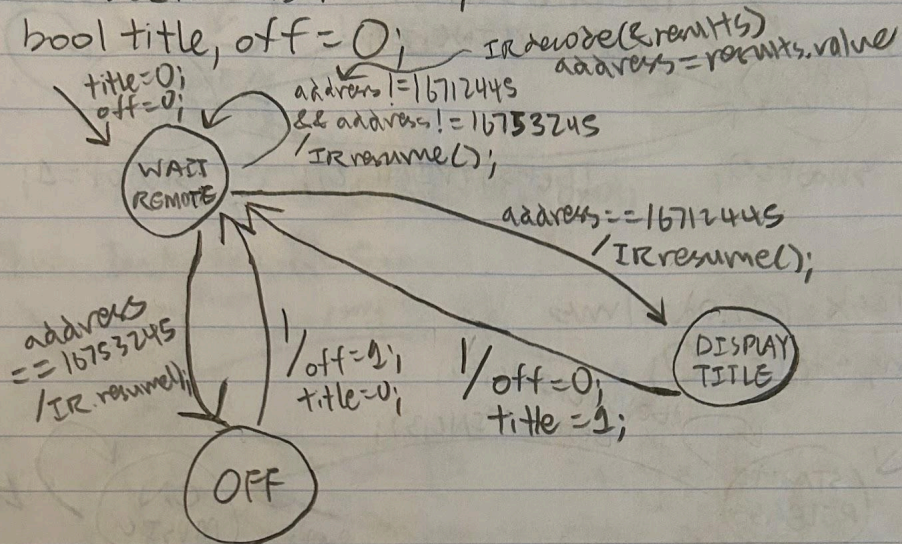 bool title, off = 0;
IRdecode(&results)
address = results.value
title=0;
off=0;
address != 16712445
&& address != 16753245
/IRresume();
WAIT
REMOTE
address == 16712445
/IRresume();
address
== 16753245
/IR.resume();
1/off=1;
title=0;
1/off=0;
title=1;
DISPLAY
TITLE
OFF